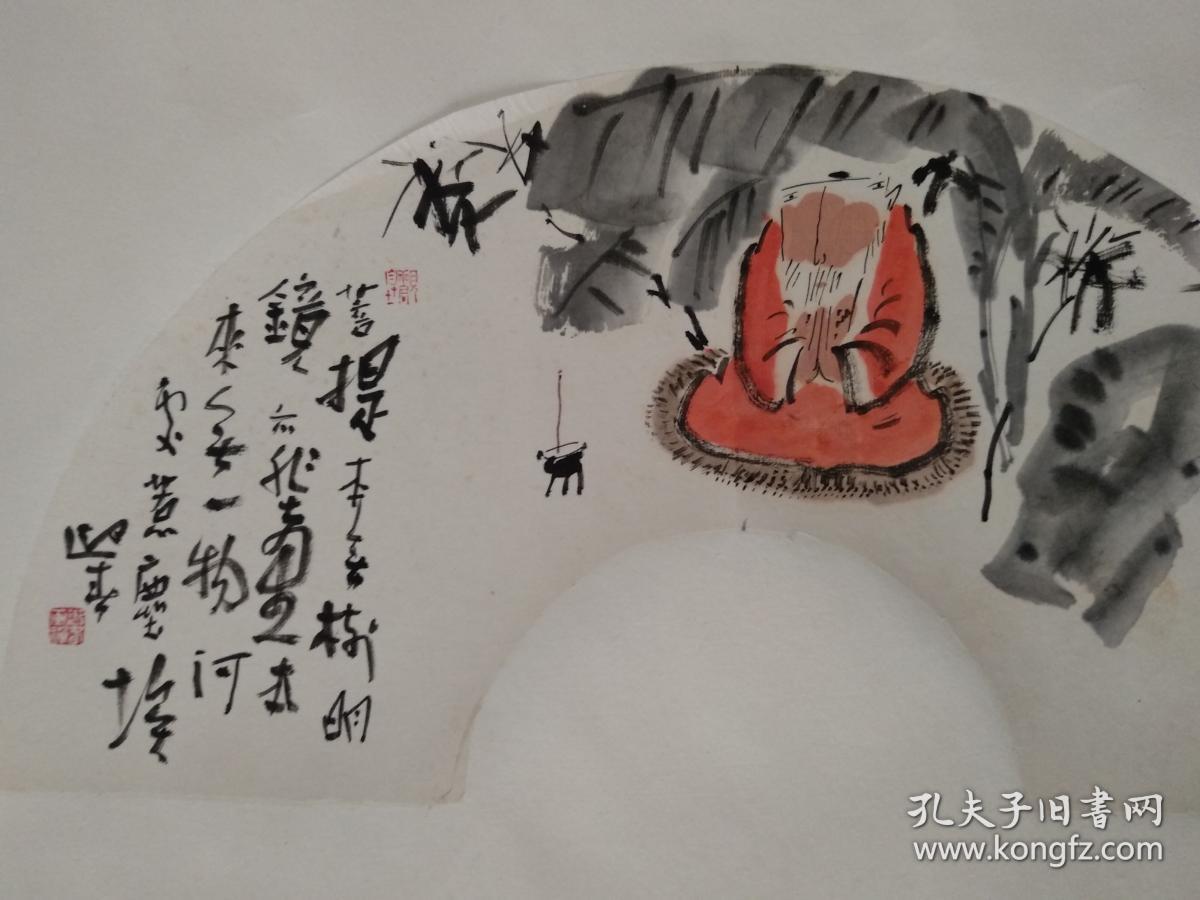 菩提本无树明
镜亦非台本
来无一物河
处惹尘埃
孔夫子旧书网
www.kongfz.com